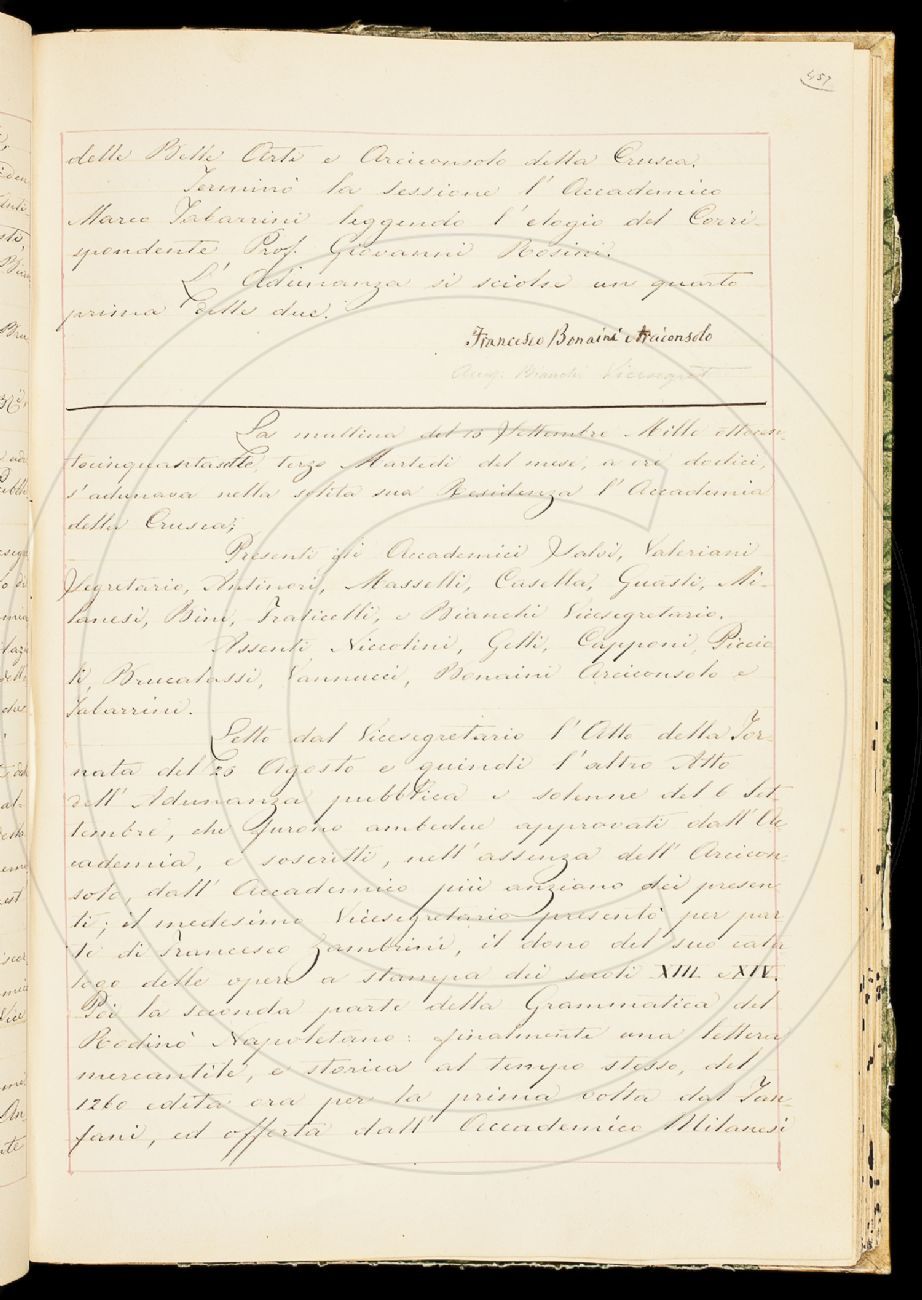 457
delle Belle Arti e Arciconsolo della Crusca.
Terminò la sessione l'Accademico
Marco Tabarrini leggendo l'elogio del Corri-
spondente Prof. Giovanni Rosini.
L'Adunanza si sciolse un quarto
prima delle due.
Francesco Bonaini Arciconsolo
Aug. Bianchi Vicesegret
La mattina del 15 Settembre Mille ottocen-
tocinquantasette, terzo Martedì del mese, a ore dodici,
s'adunava nella solita sua Residenza l'Accademia
della Crusca;
Presenti gli Accademici Salvi, Valeriani
Segretario, Antinori, Masselli, Casella, Guasti, Mi-
lanesi, Bini, Fraticelli, e Bianchi Vicesegretario.
Assenti Niccolini, Gelli, Capponi, Piccio
li, Brucalassi, Vannucci, Bonaini Arciconsolo e
Tabarrini.
Letto dal Vicesegretario l'Atto della Tor-
nata del 25 Agosto e quindi l'altro Atto
dell'Adunanza pubblica e solenne del 6 Set-
tembre, che furono ambedue approvati dall'Ac
cademia, e soscritti, nell'assenza dell'Arcicon-
solo, dall'Accademico più anziano dei presen-
ti; il medesimo Vicesegretario presentò per par
te di Francesco Zambrini, il dono del suo cata
logo delle opere a stampa dei secoli XIII e XIV.
Poi la seconda parte della Grammatica del
Rodinò Napoletano: finalmente una lettera
mercantile, e storica al tempo stesso, del
1260 edita ora per la prima volta dal Fan-
fani, ed offerta dall'Accademico Milanesi